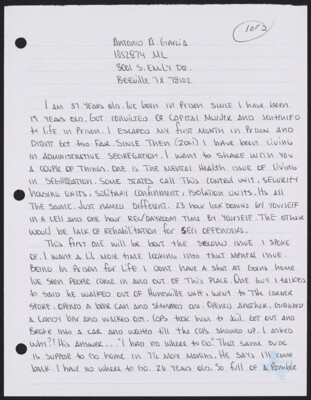 1 of 2
Antonio A. Garcia
1852874 ML
8001 S. Emily Dr.
Beeville TX 78102
I am 37 years old. I've been in Prison since I have been
19 years old. Got convicted of Capital Murder and sentenced
to Life in Prison. I escaped my first month in Prison and
didnt get too far. Since then (2011) I have been living
in Administrative Segregation. I want to share with you
a couple of things. One is the mental health issue of living
in segregation. Some states call this control unit, security
housing units, solitary confinement, isolation units. Its all
the same. Just named different. 23 hour lock downs by yourself
in a cell and one hour rec/dayroom time by yourself. The other
would be lack of rehabilitation for sex offenders.
This first one will be bout the second issue I spoke
of. I want a lil more time looking into that mental issue.
Being in Prison for life I dont have a shot at going home.
I've seen people come in and out of this place. One guy I talked
to said he walked out of Huntsville unit, went to the corner
store, opened a beer can and slammed an opened another, grabbed
a candy bar and walked out. Cops took him to jail. Got out and
broke into a car and waited till the cops showed up. I asked
why?! His answer... "I had no where to go" That same dude
is suppose to go home in 7½ more months. He says I'll come
back. I have no where to go. 26 years old. So full of a